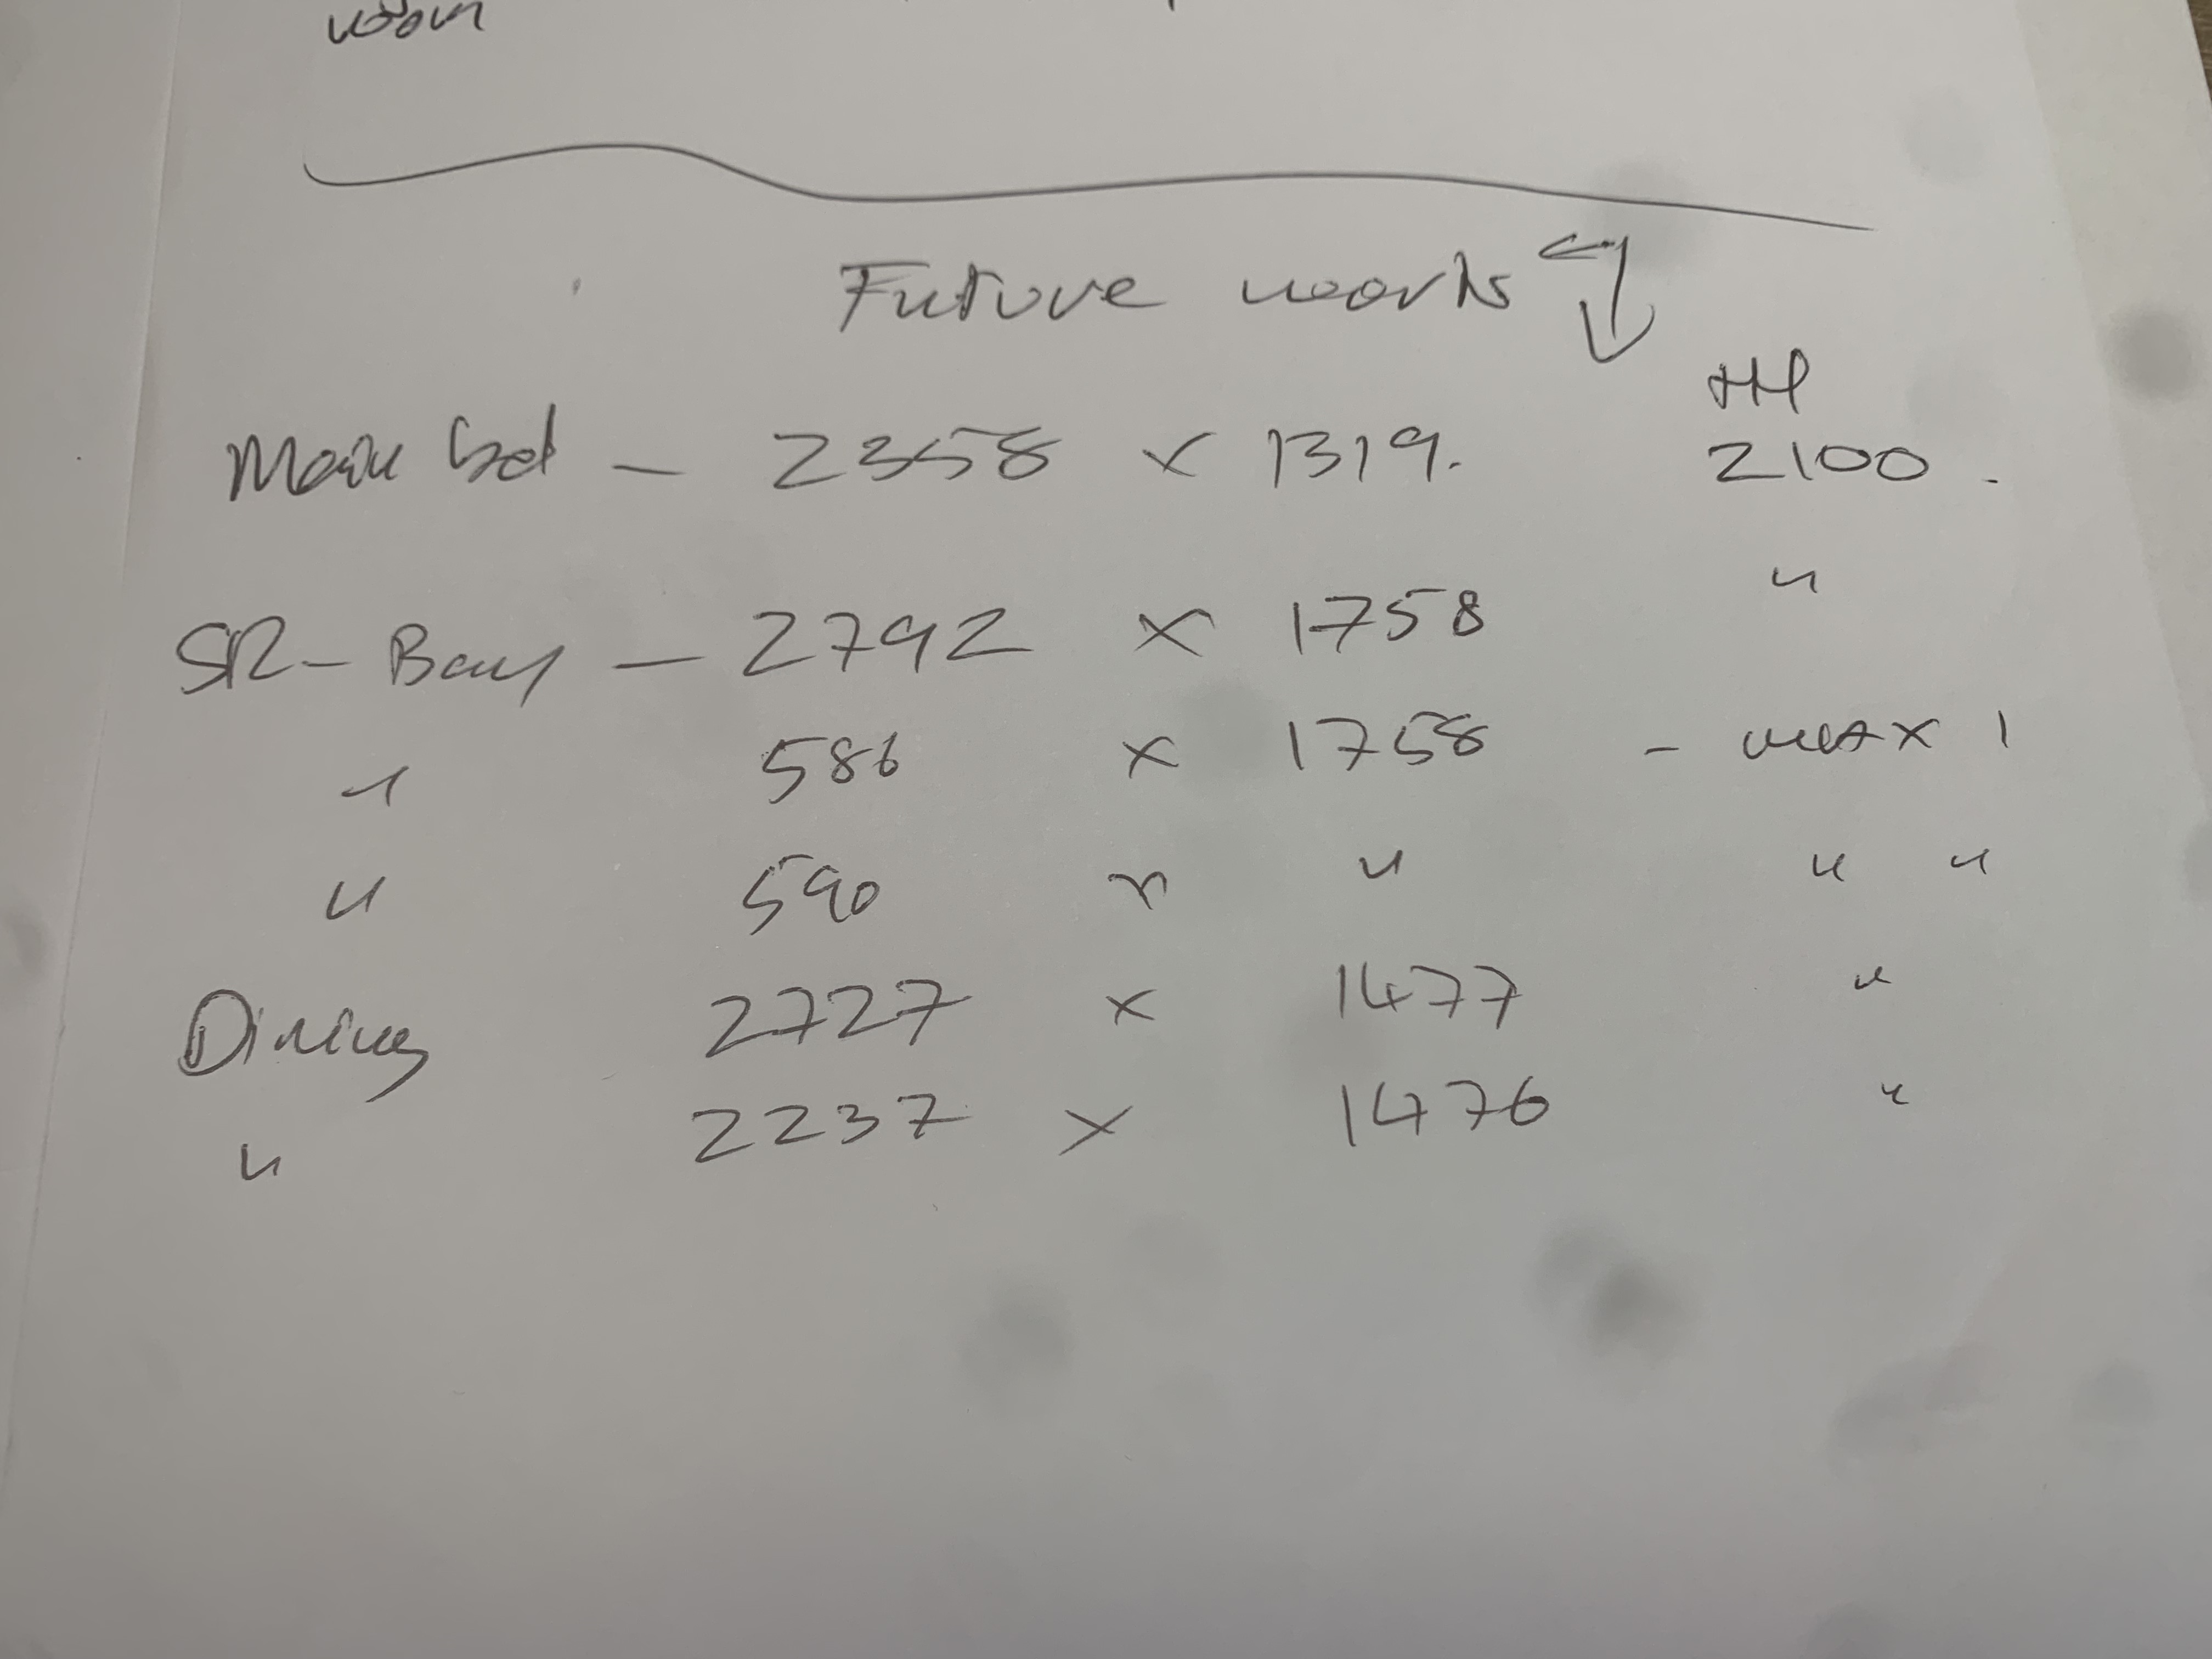 room
Future works
HH
Main bed - 2358 x 1319. 2100.
SR - Bay - 2792 x 1758 "
" 586 x 1758 - max 1
" 590 x " " "
Dining 2727 x 1477 "
" 2237 x 1476 "